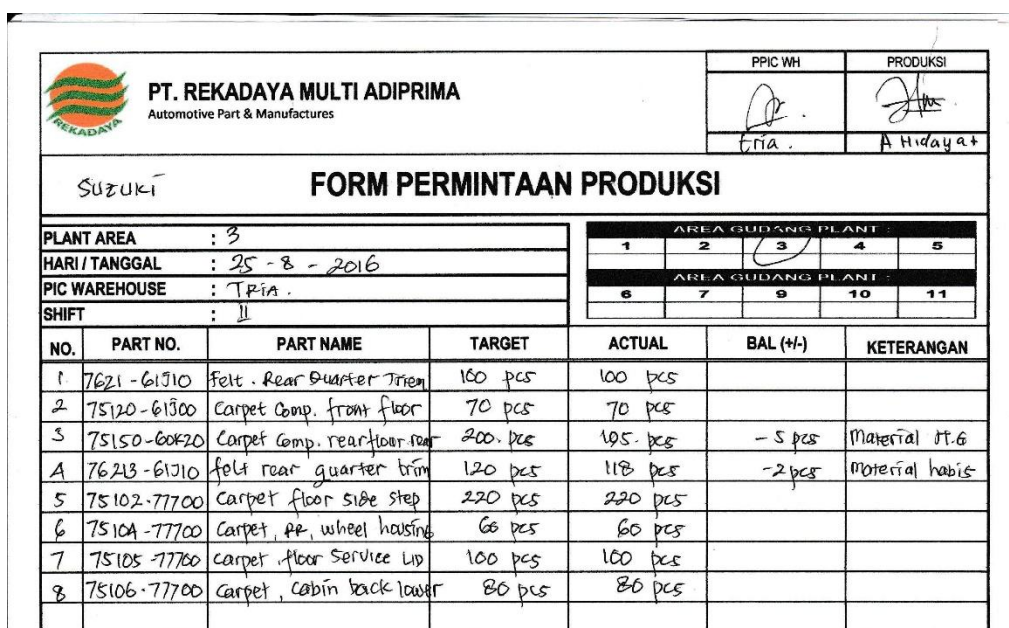 PPIC WH PRODUKSI
REKADAYA
PT. REKADAYA MULTI ADIPRIMA
Automotive Part & Manufactures
Eria . A Hidayat
SUZUKI FORM PERMINTAAN PRODUKSI
PLANT AREA : 3
HARI / TANGGAL : 25 - 8 - 2016
PIC WAREHOUSE : TRIA .
SHIFT : II
AREA GUDANG PLANT :
1 2 3 4 5
AREA GUDANG PLANT :
6 7 9 10 11
NO. PART NO. PART NAME TARGET ACTUAL BAL (+/-) KETERANGAN
1. 7621-61J10 Felt . Rear Quarter Triem 100 pcs 100 pcs
2 75120-61J00 Carpet Comp. front floor 70 pcs 70 pcs
3 75150-60K20 Carpet Comp. rear floor rear 200. pcs 195. pcs - 5 pcs Material
4 76213-61J10 felt rear quarter trim 120 pcs 118 pcs -2 pcs Material habis
5 75102-77700 Carpet floor side step 220 pcs 220 pcs
6 75104-77700 Carpet, RR, wheel housing 60 pcs 60 pcs
7 75105-77700 carpet, floor Service LID 100 pcs 100 pcs
8 75106-77700 carpet, cabin back lower 80 pcs 80 pcs